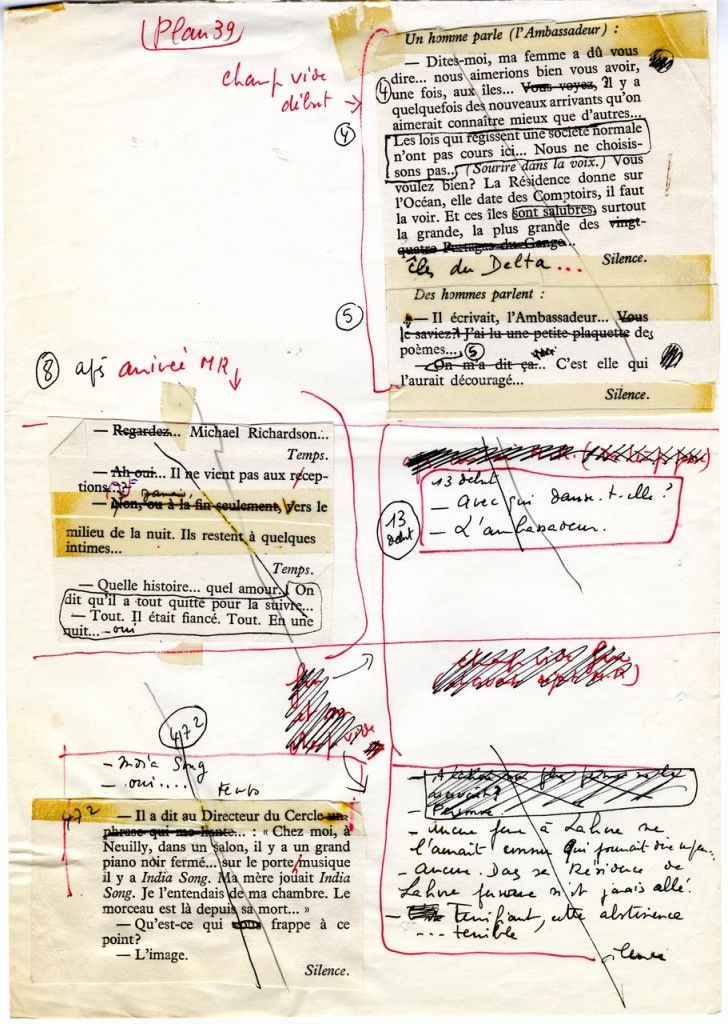 Plan 39
champ vide
début →
④
Un homme parle (l'Ambassadeur) :
— Dites-moi, ma femme a dû vous
dire... nous aimerions bien vous avoir,
④ une fois, aux îles... Vous voyez, Il y a
quelquefois des nouveaux arrivants qu'on
aimerait connaître mieux que d'autres...
Les lois qui régissent une société normale
n'ont pas cours ici... Nous ne choisis-
sons pas... (Sourire dans la voix.) Vous
voulez bien? La Résidence donne sur
l'Océan, elle date des Comptoirs, il faut
la voir. Et ces îles sont salubres, surtout
la grande, la plus grande des vingt-
quatre Partages du Gange...
îles du Delta...
Silence.
⑤
Des hommes parlent :
— Il écrivait, l'Ambassadeur... Vous
le saviez? J'ai lu une petite plaquette des
poèmes... ⑤
— On m'a dit ça... C'est elle qui
l'aurait découragé...
Silence.
⑧ arrivée MR ↓
— Regardez... Michael Richardson...
Temps.
— Ah oui... Il ne vient pas aux récep-
tions...
jamais,
— Non, ou à la fin seulement, vers le
milieu de la nuit. Ils restent à quelques
intimes...
Temps.
— Quelle histoire... quel amour. On
dit qu'il a tout quitté pour la suivre...
— Tout. Il était fiancé. Tout. En une
nuit... - oui
13
début
13 début
— Avec qui danse-t-elle?
— L'ambassadeur.
472
— India Song
— oui....
temps
472
— Il a dit au Directeur du Cercle une
phrase qui me hante... : « Chez moi, à
Neuilly, dans un salon, il y a un grand
piano noir fermé... sur le porte musique
il y a India Song. Ma mère jouait India
Song. Je l'entendais de ma chambre. Le
morceau est là depuis sa mort... »
— Qu'est-ce qui vous frappe à ce
point?
— L'image.
Silence.
— Personne.
— Aucune femme à Lahore ne
l'aurait connu qui pourrait dire
— Aucune. Dans sa Résidence de
Lahore personne n'est jamais allé.
— Terrifiant, cette abstinence
... terrible
silence